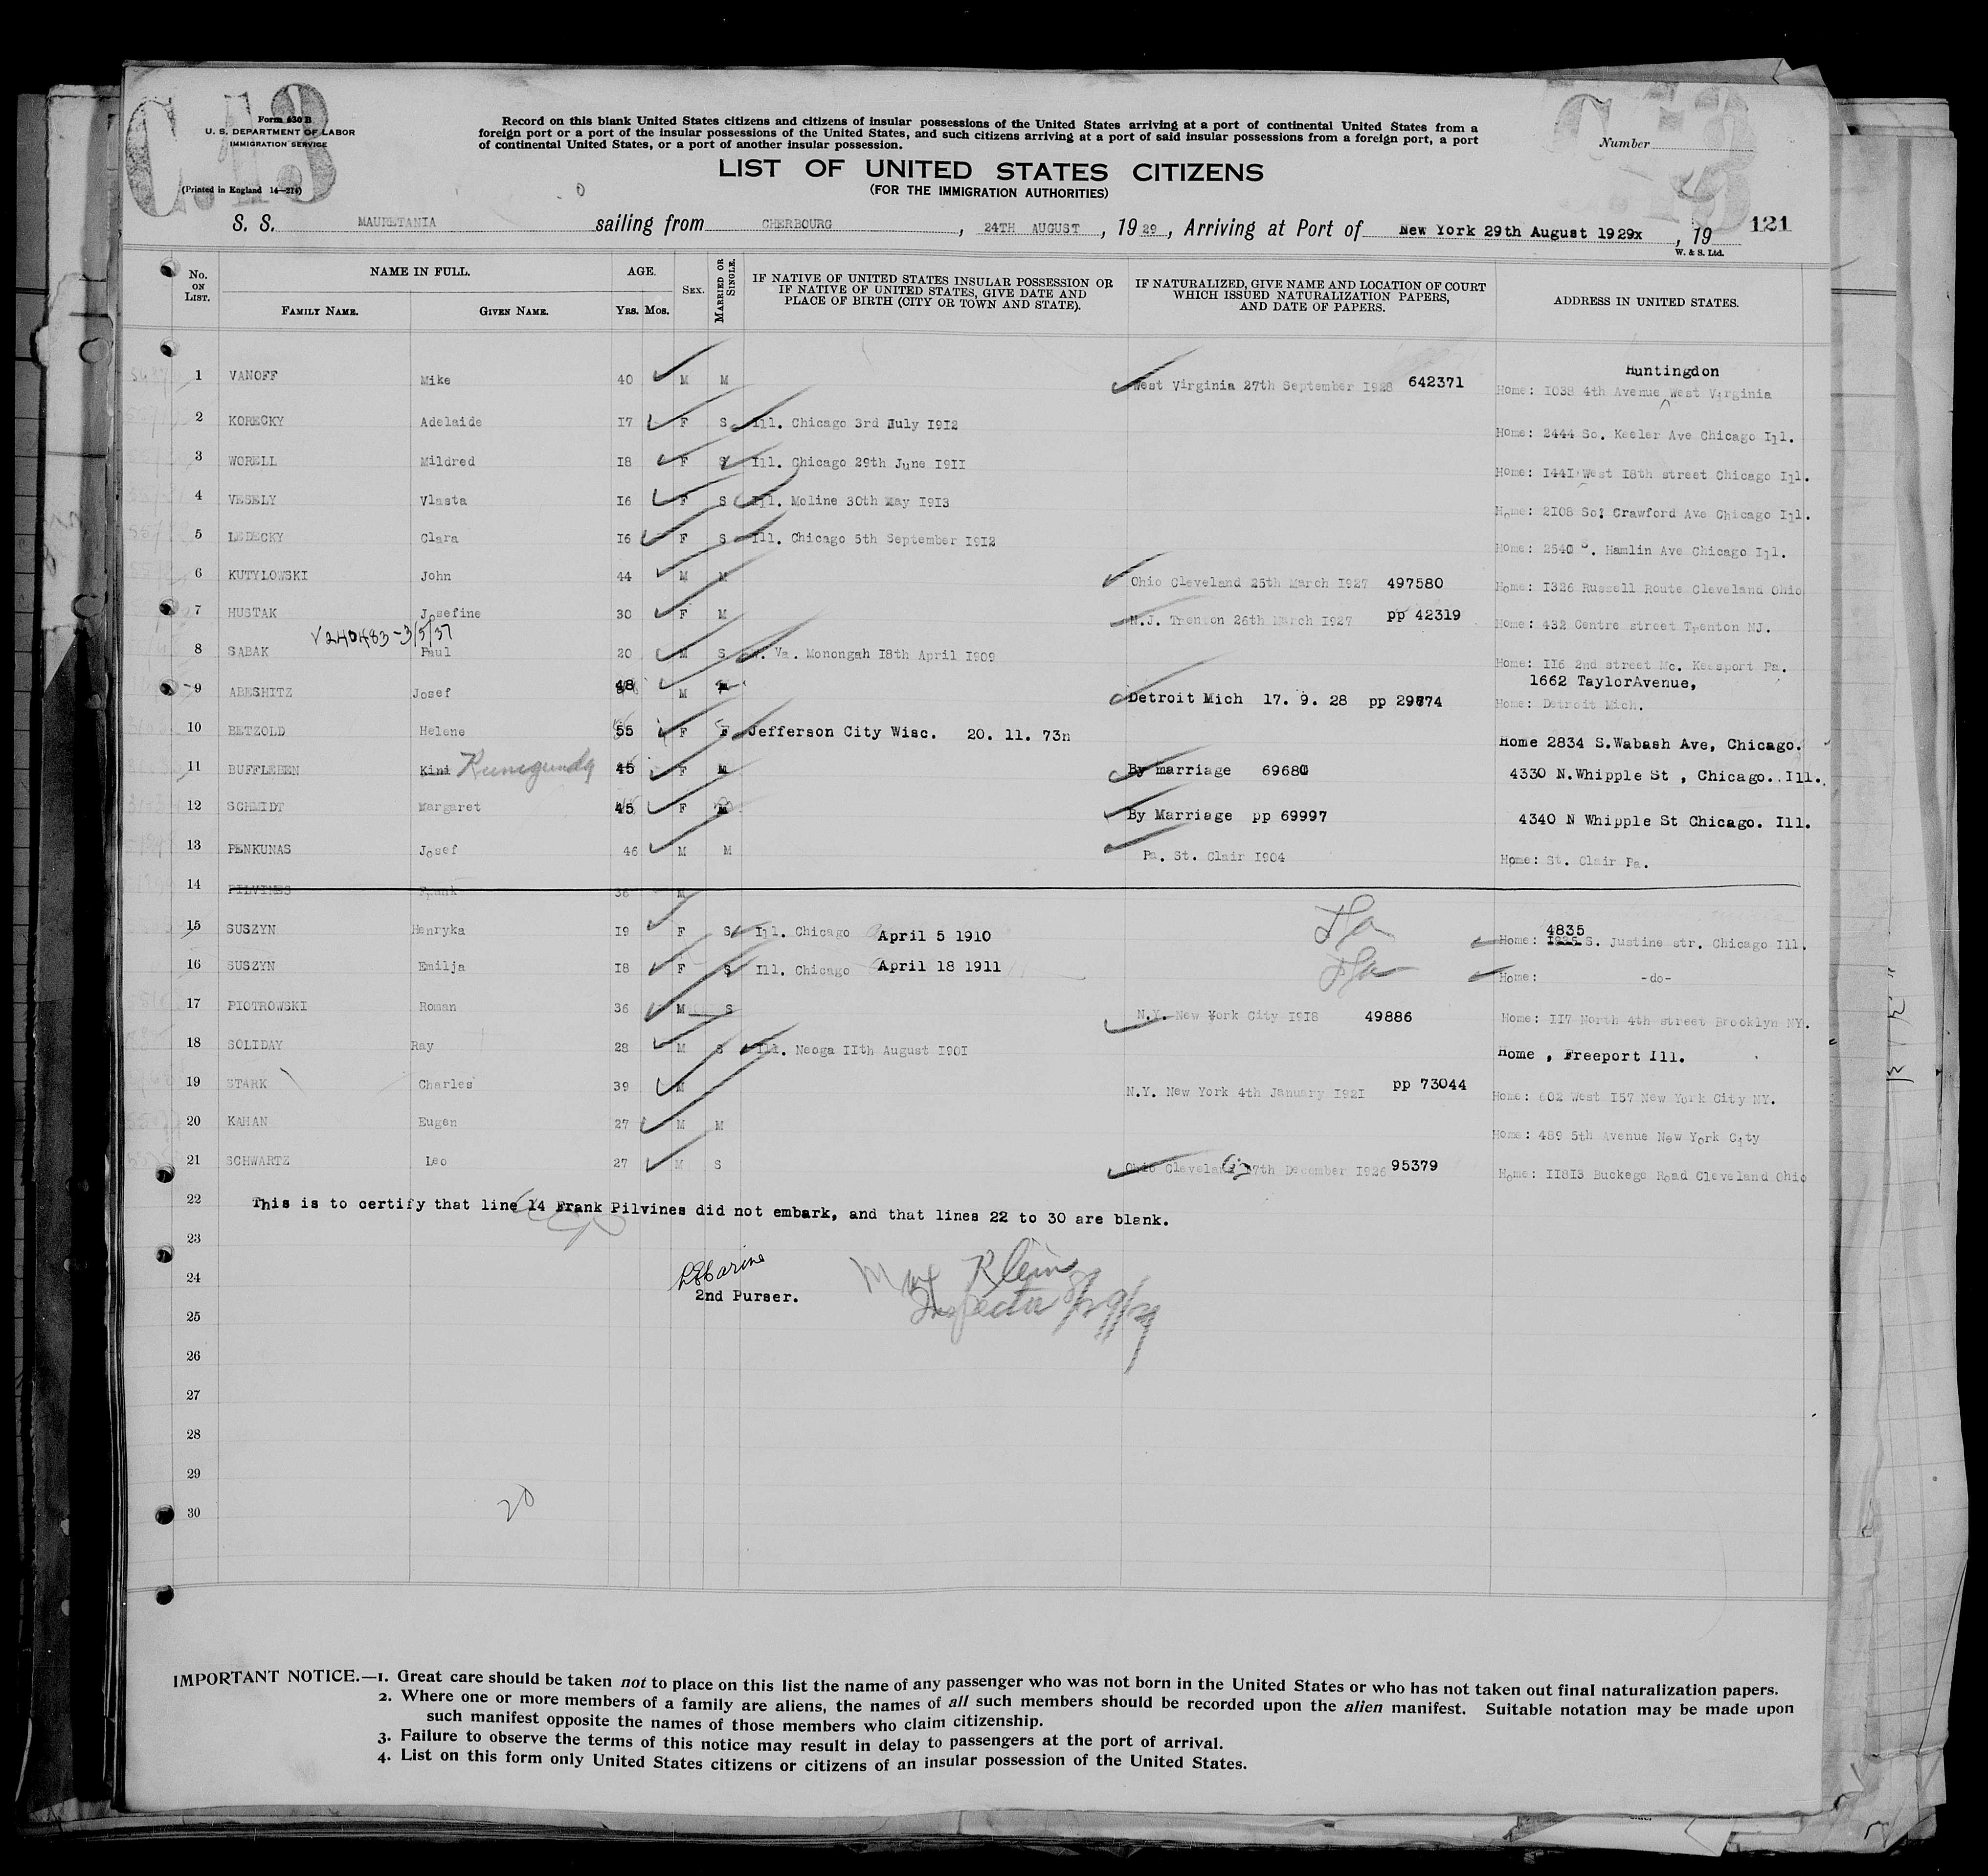 C.13
Form 630 B
U. S. DEPARTMENT OF LABOR
IMMIGRATION SERVICE
(Printed in England 14—214)
Record on this blank United States citizens and citizens of insular possessions of the United States arriving at a port of continental United States from a
foreign port or a port of the insular possessions of the United States, and such citizens arriving at a port of said insular possessions from a foreign port, a port
of continental United States, or a port of another insular possession.
Number
LIST OF UNITED STATES CITIZENS
(FOR THE IMMIGRATION AUTHORITIES)
S. S. MAURETANIA sailing from CHERBOURG, 24TH AUGUST, 1929, Arriving at Port of New York 29th August 1929x, 19 121
W. & S. Ltd.
No. ON LIST. NAME IN FULL. AGE. SEX. MARRIED OR SINGLE. IF NATIVE OF UNITED STATES INSULAR POSSESSION OR IF NATIVE OF UNITED STATES, GIVE DATE AND PLACE OF BIRTH (CITY OR TOWN AND STATE). IF NATURALIZED, GIVE NAME AND LOCATION OF COURT WHICH ISSUED NATURALIZATION PAPERS, AND DATE OF PAPERS. ADDRESS IN UNITED STATES.
FAMILY NAME. GIVEN NAME. YRS. MOS.
Huntingdon
1 VANOFF Mike 40 M M West Virginia 27th September 1928 642371 Home: 1038 4th Avenue West Virginia
2 KORECKY Adelaide 17 F S Ill. Chicago 3rd July 1912 Home: 2444 So. Keeler Ave Chicago Ill.
3 WORELL Mildred 18 F S Ill. Chicago 29th June 1911 Home: 1441 West 18th street Chicago Ill.
4 VESELY Vlasta 16 F S Ill. Moline 30th May 1913 Home: 2108 So: Crawford Ave Chicago Ill.
5 LEDECKY Clara 16 F S Ill. Chicago 5th September 1912 Home: 2540 S. Hamlin Ave Chicago Ill.
6 KUTYLOWSKI John 44 M M Ohio Cleveland 25th March 1927 497580 Home: 1326 Russell Route Cleveland Ohio
7 HUSTAK Josefine 30 F M N.J. Trenton 26th March 1927 pp 42319 Home: 432 Centre street Trenton NJ.
V240483-3/5/37
8 SABAK Paul 20 M S W. Va. Monongah 18th April 1909 Home: 116 2nd street Mc. Keesport Pa.
1662 TaylorAvenue,
9 ABESHITZ Josef 48 M M Detroit Mich 17. 9. 28 pp 29874 Home: Detroit Mich.
10 BETZOLD Helene 55 F Jefferson City Wisc. 20. 11. 73n Home 2834 S.Wabash Ave, Chicago.
11 BUFFLEBEN Kini Kunigunda 45 F M By marriage 69680 4330 N.Whipple St , Chicago. Ill.
12 SCHMIDT Margaret 45 F M By Marriage pp 69997 4340 N Whipple St Chicago. Ill.
13 PENKUNAS Josef 46 M M Pa. St. Clair 1904 Home: St. Clair Pa.
14 PILVINES Frank 38 M
4835
15 SUSZYN Henryka 19 F S Ill. Chicago April 5 1910 Home: S. Justine str. Chicago Ill.
16 SUSZYN Emilja 18 F S Ill. Chicago April 18 1911 Home: -do-
17 PIOTROWSKI Roman 36 M S N.Y. New York City 1918 49886 Home: 117 North 4th street Brooklyn NY.
18 SOLIDAY Ray 28 M S Ill. Neoga 11th August 1901 Home , Freeport Ill.
19 STARK Charles 39 M N.Y. New York 4th January 1921 pp 73044 Home: 602 West 157 New York City NY.
20 KAHAN Eugen 27 M M Home: 489 5th Avenue New York City
21 SCHWARTZ Leo 27 M S Ohio Cleveland 17th December 1926 95379 Home: 11813 Buckege Road Cleveland Ohio
22 This is to certify that line 14 Frank Pilvines did not embark, and that lines 22 to 30 are blank.
23
24
2nd Purser.
Klein
Inspector 8/29/29
25
26
27
28
29
20
30
IMPORTANT NOTICE.—1. Great care should be taken not to place on this list the name of any passenger who was not born in the United States or who has not taken out final naturalization papers.
2. Where one or more members of a family are aliens, the names of all such members should be recorded upon the alien manifest. Suitable notation may be made upon
such manifest opposite the names of those members who claim citizenship.
3. Failure to observe the terms of this notice may result in delay to passengers at the port of arrival.
4. List on this form only United States citizens or citizens of an insular possession of the United States.